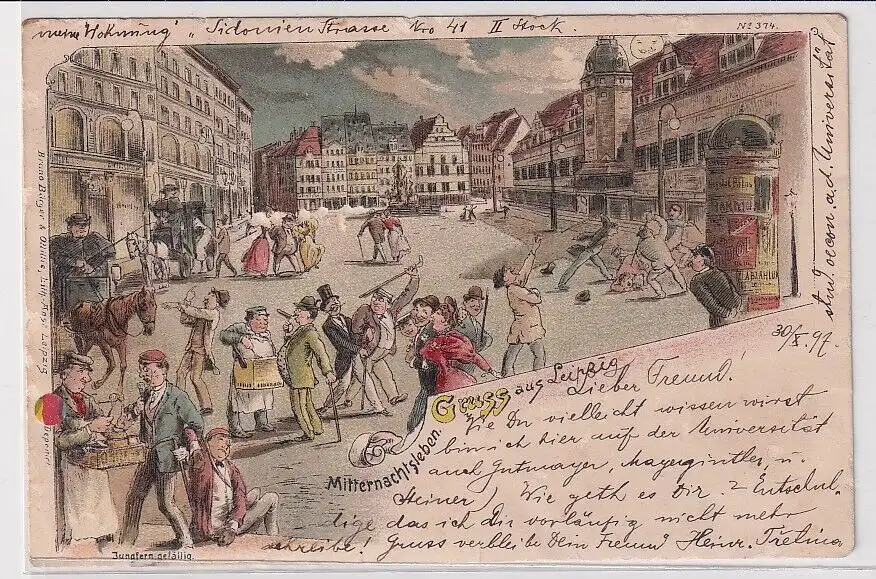 meine Wohnung „Sidonien Strasse Nro 41 II Stock.
No 374.
stud. oecon a. d. Universität
Bruno Bürger & Ottillie, Lith. Anst. Leipzig
Deponirt
30/X. 97.
Gruss aus Leipzig
Mitternachtsleben.
Lieber Freund!
Wie Du vielleicht wissen wirst
bin ich hier auf der Universität
auch Gutmayer, Mayergintler, u.
Steiner, Wie geth es Dir? Entschul-
tige das ich Dir vorläufig nicht mehr
schreibe! Gruss verbleibe Dein Freund Heinr.
Jungfern gefällig.